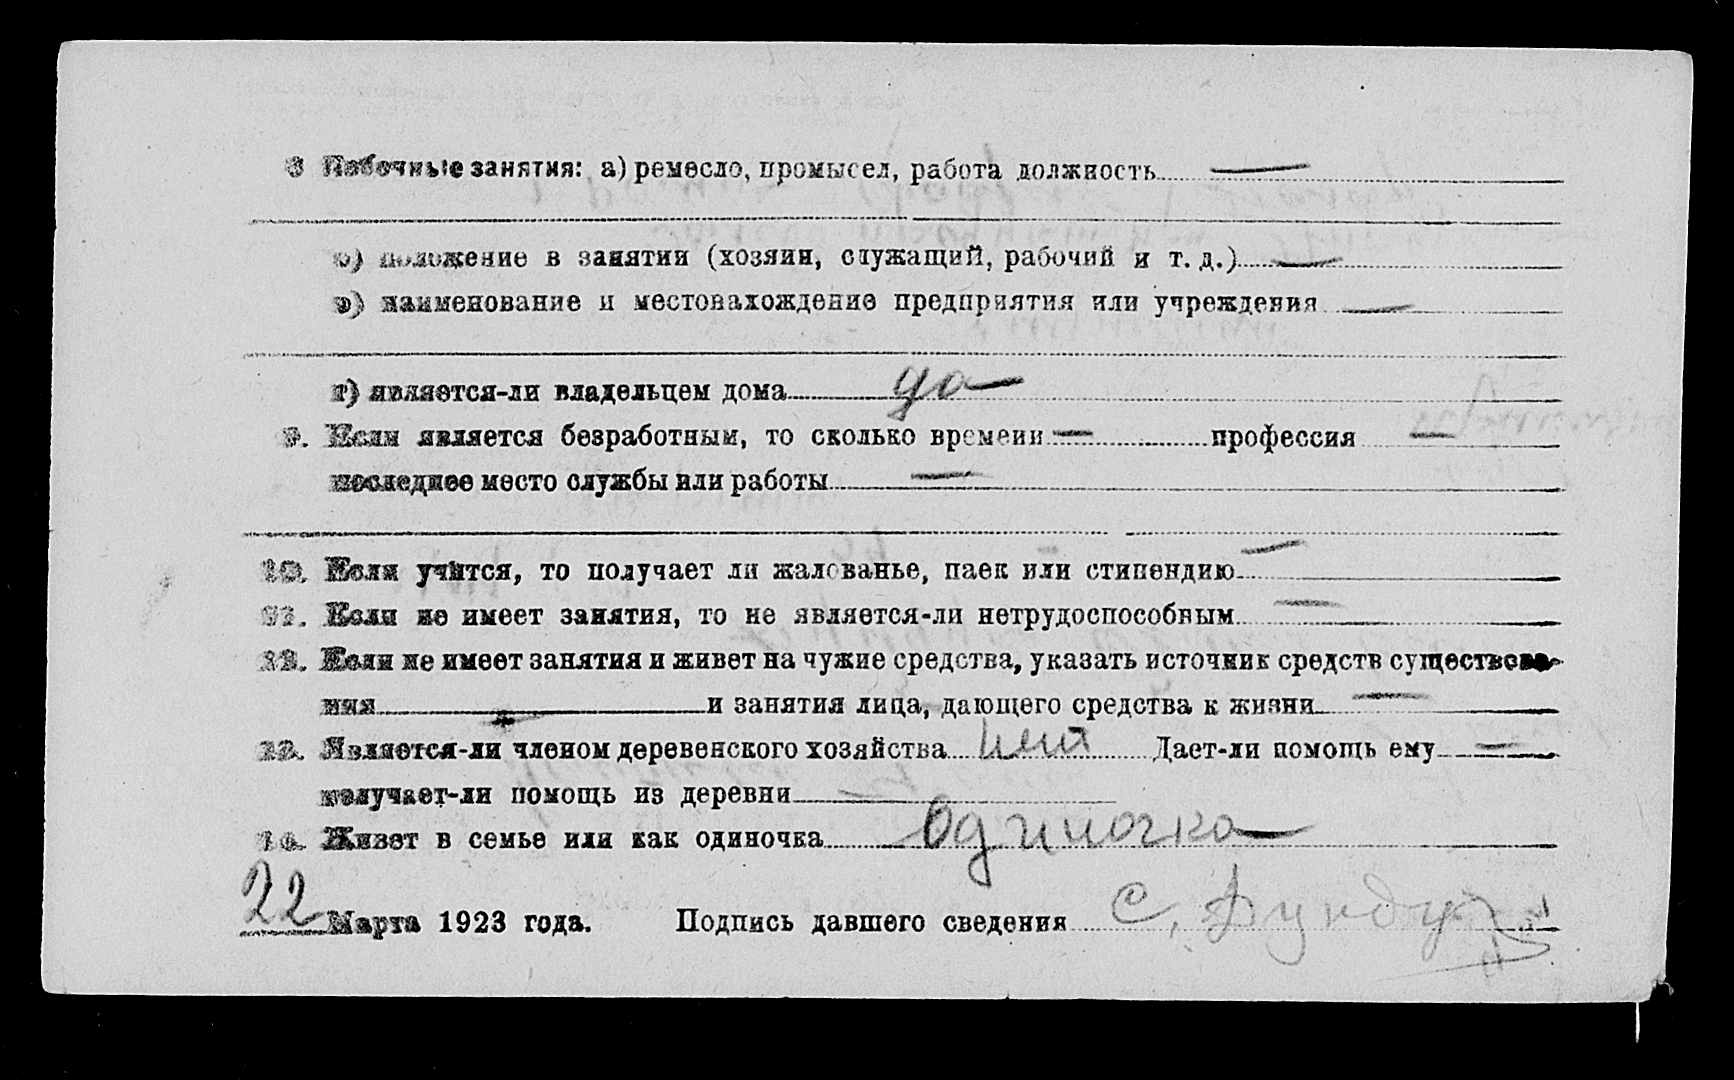 8 Побочные занятия: а) ремесло, промысел, работа должность —
б) положение в занятии (хозяин, служащий, рабочий и т. д.) —
в) наименование и местонахождение предприятия или учреждения —
г) является-ли владельцем дома да
9. Если является безработным, то сколько времени — профессия —
последнее место службы или работы —
10. Если учится, то получает ли жалованье, паек или стипендию —
11. Если не имеет занятия, то не является-ли нетрудоспособным —
12. Если не имеет занятия и живет на чужие средства, указать источник средств существова-
ния — и занятия лица, дающего средства к жизни —
13. Является-ли членом деревенского хозяйства нет Дает-ли помощь ему —
получает-ли помощь из деревни —
14. Живет в семье или как одиночка одиночка
22 Марта 1923 года. Подпись давшего сведения С.